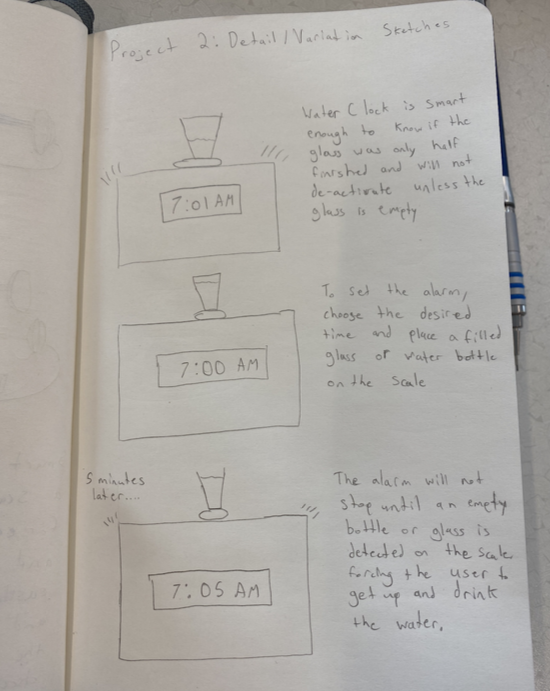 Project 2: Detail/Variation Sketches
Water Clock is smart
enough to know if the
glass was only half
finished and will not
de-activate unless the
glass is empty
7:01 AM
To set the alarm,
choose the desired
time and place a filled
glass or water bottle
on the scale
7:00 AM
5 minutes
later....
The alarm will not
stop until an empty
bottle or glass is
detected on the scale
forcing the user to
get up and drink
the water.
7:05 AM